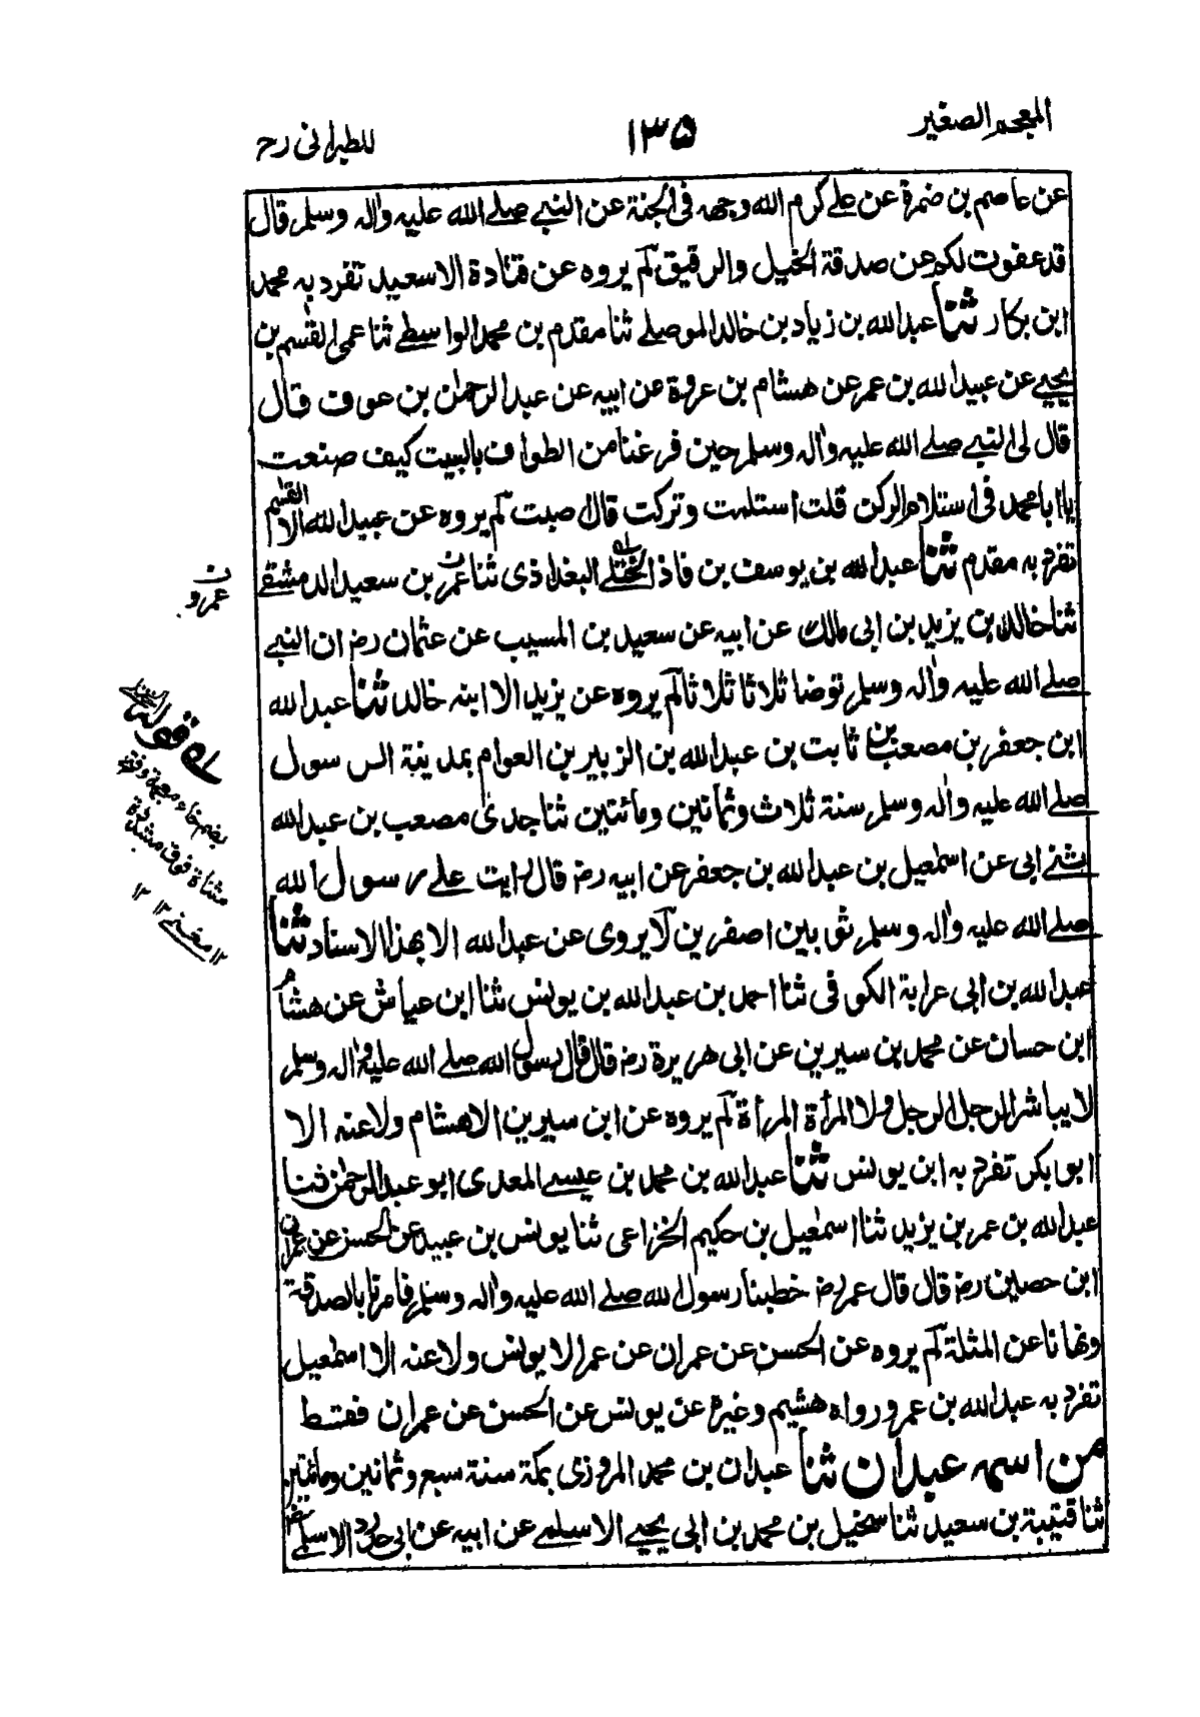 المعجم الصغير
١٣٥
للطبرانی رح
عن عاصم بن ضمرة عن علے کرم الله وجهه فی الجنة عن النبے صلے الله علیه واٰله وسلم قال
قد عفوت لکم عن صدقة الخیل والرقیق لم یروه عن قتادة الا سعید تفرد به محمد
ابن بکار ثنا عبدالله بن زیاد بن خالد الموصلے ثنا مقدم بن محمد الواسطے ثنا عمی القٰسم بن
یحیے عن عبید الله بن عمر عن هشام بن عروة عن ابیه عن عبد الرحمٰن بن عوف قال
قال لی النبے صلے الله علیه واٰله وسلم حین فرغنا من الطواف بالبیت کیف صنعت
یا ابا محمد فی استلام الرکن قلت استلمت وترکت قال اصبت لم یروه عن عبید الله الا القٰسم
تفرد به مقدم ثنا عبد الله بن یوسف بن فاذ الختلے البغداذی ثنا عمر بن سعید الدمشقے
ثنا خالد بن یزید بن ابی مالك عن ابیه عن سعید بن المسیب عن عثمان رض ان النبے
صلے الله علیه واٰله وسلم توضا ثلاثا ثلاثا لم یروه عن یزید الا ابنه خالد ثنا عبد الله
ابن جعفر بن مصعب بن ثابت بن عبد الله بن الزبیر بن العوام بمدینة الرسول
صلے الله علیه واٰله وسلم سنة ثلاث وثمانین ومائتین ثنا جدی مصعب بن عبد الله
ثنے ابی عن اسمٰعیل بن عبد الله بن جعفر عن ابیه رض قال رایت علے رسول الله
صلے الله علیه واٰله وسلم ثوبین اصفرین لا یروی عن عبد الله الا بهذا الاسناد ثنا
عبد الله بن ابی عرابة الکوفی ثنا احمد بن عبد الله بن یونس ثنا ابن عیاش عن هشام
ابن حسان عن محمد بن سیرین عن ابی هریرة رض قال قال رسول الله صلے الله علیه واٰله وسلم
لا یباشر الرجل الرجل ولا المرأة المرأة لم یروه عن ابن سیرین الا هشام ولا عنه الا
ابو بکر تفرد به ابن یونس ثنا عبد الله بن محمد بن عیسے المعدی ابو عبد الرحمٰن ثنا
عبد الله بن عمر بن یزید ثنا اسمٰعیل بن حکیم الخزاعی ثنا یونس بن عبید عن الحسن عن عمران
ابن حصین رض قال قال عمر رض خطبنا رسول الله صلے الله علیه واٰله وسلم فامرنا بالصدقة
ونهانا عن المثلة لم یروه عن الحسن عن عمران عن عمر الا یونس ولا عنه الا اسمٰعیل
تفرد به عبد الله بن عمرو رواه هشیم وغیره عن یونس عن الحسن عن عمران فقط
من اسمه عبدان ثنا عبدان بن محمد المروزی بمکة سنة سبع وثمانین ومائتین
ثنا قتیبة بن سعید ثنا بن محمد بن ابی یحیے الاسلمے عن ابیه عن ابی حدرد الاسلمے رض
عمرو ن
له قوله الختلے
بضم خاء معجمة وفتح
مثناة فوق مشددة
١٢ مغنے ١٢ ١٢